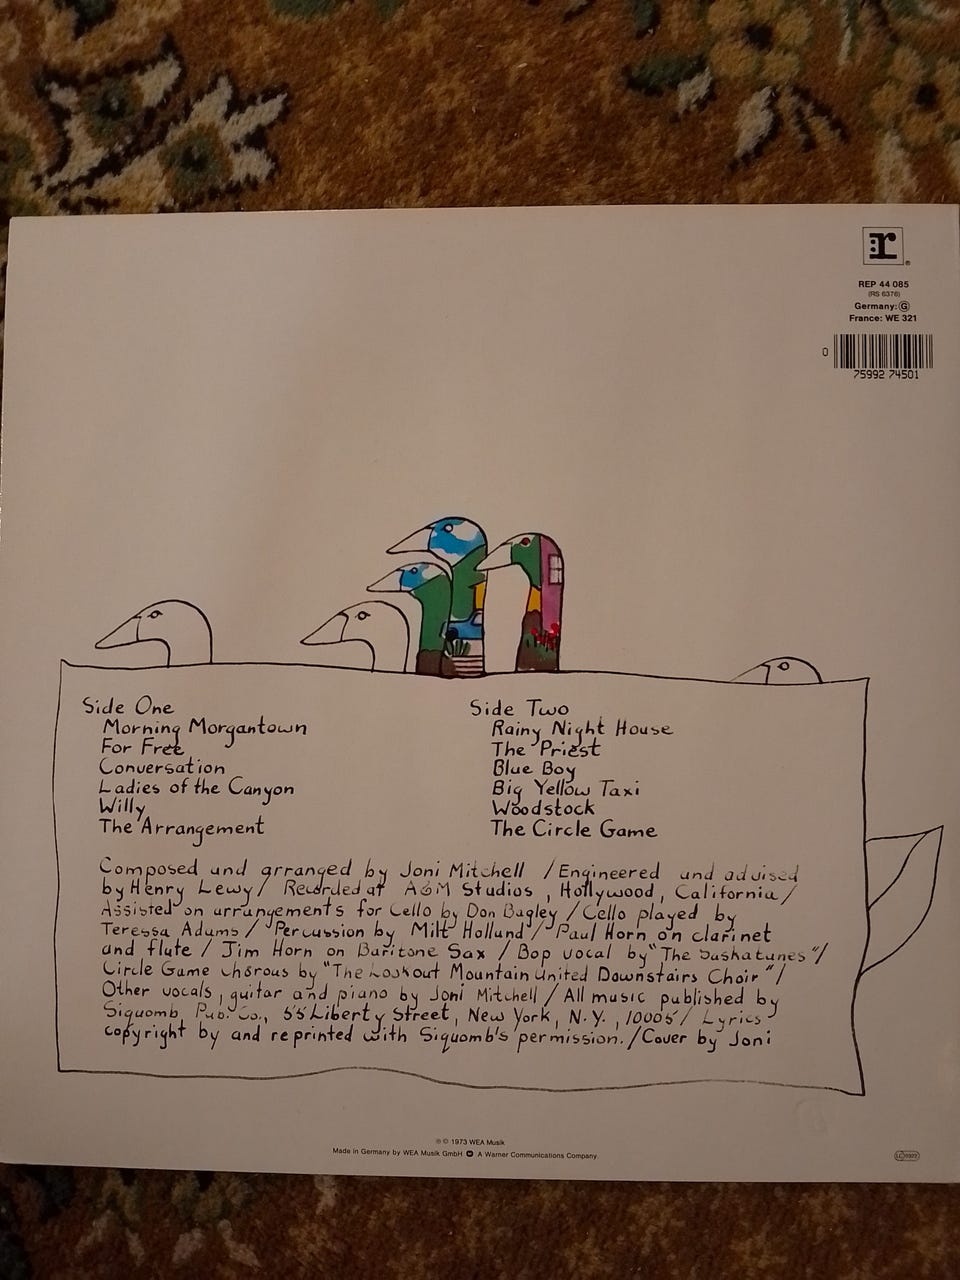 r
®
REP 44 085
(RS 6376)
Germany: G
France: WE 321
0
75992 74501
Side One
Morning Morgantown
For Free
Conversation
Ladies of the Canyon
Willy
The Arrangement
Side Two
Rainy Night House
The Priest
Blue Boy
Big Yellow Taxi
Woodstock
The Circle Game
Composed and arranged by Joni Mitchell / Engineered and advised
by Henry Lewy / Recorded at A&M Studios, Hollywood, California /
Assisted on arrangements for Cello by Don Bagley / Cello played by
Teressa Adams / Percussion by Milt Holland / Paul Horn on clarinet
and flute / Jim Horn on Baritone Sax / Bop vocal by "The Saskatunes" /
Circle Game chorus by "The Lookout Mountain United Downstairs Choir" /
Other vocals, guitar and piano by Joni Mitchell / All music published by
Siquomb Pub. Co., 55 Liberty Street, New York, N.Y., 10005 / Lyrics
copyright by and reprinted with Siquomb's permission. / Cover by Joni
℗ © 1973 WEA Musik
Made in Germany by WEA Musik GmbH A Warner Communications Company